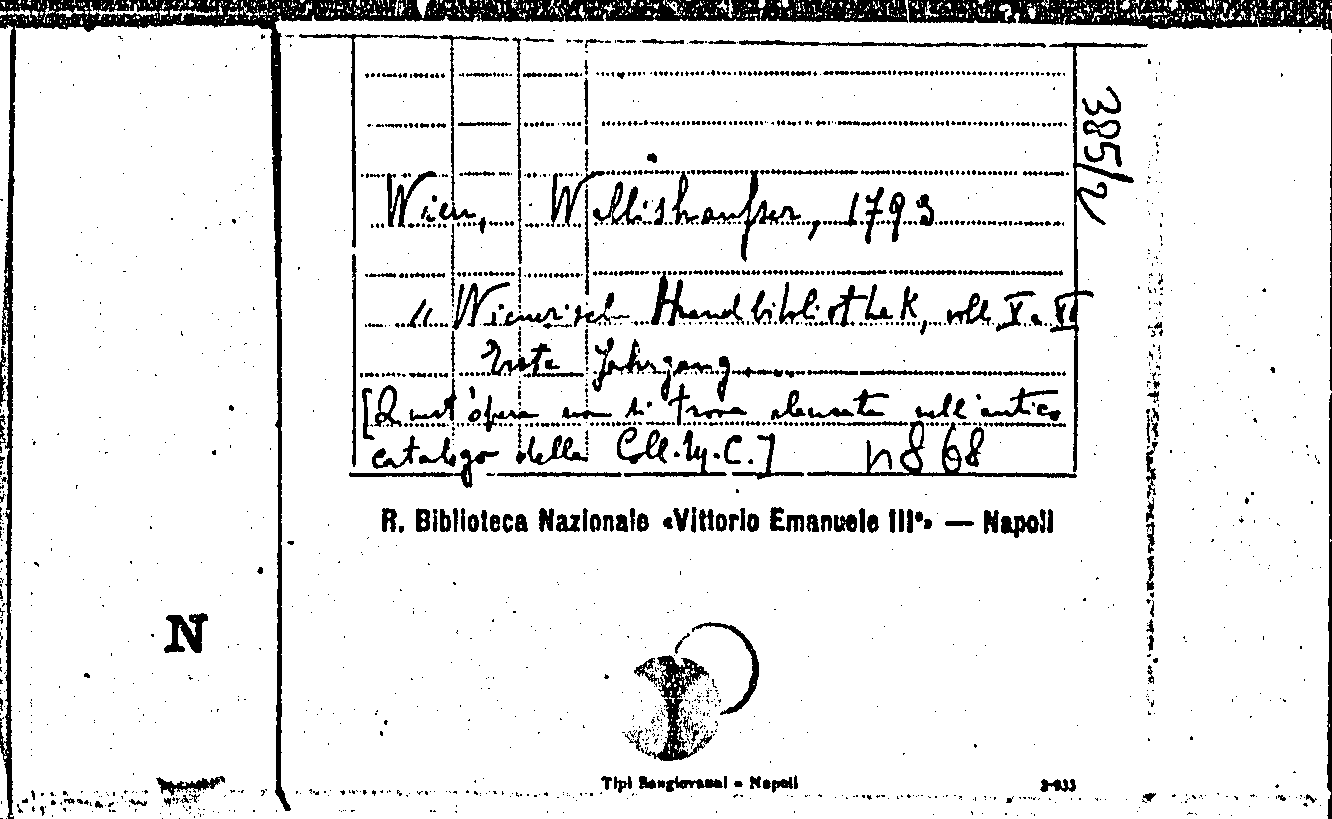 385/2
Wien, Wallishausser, 1793
"Wienerisch Handbibliothek, voll. V e VI
Erste Jahrgang....
[Quest'opera non si trova elencata nell'antico
catalogo della Coll. M. C.] n 868
R. Biblioteca Nazionale «Vittorio Emanuele III°» — Napoli
N
Tipi Sangiovanni - Napoli
2-933